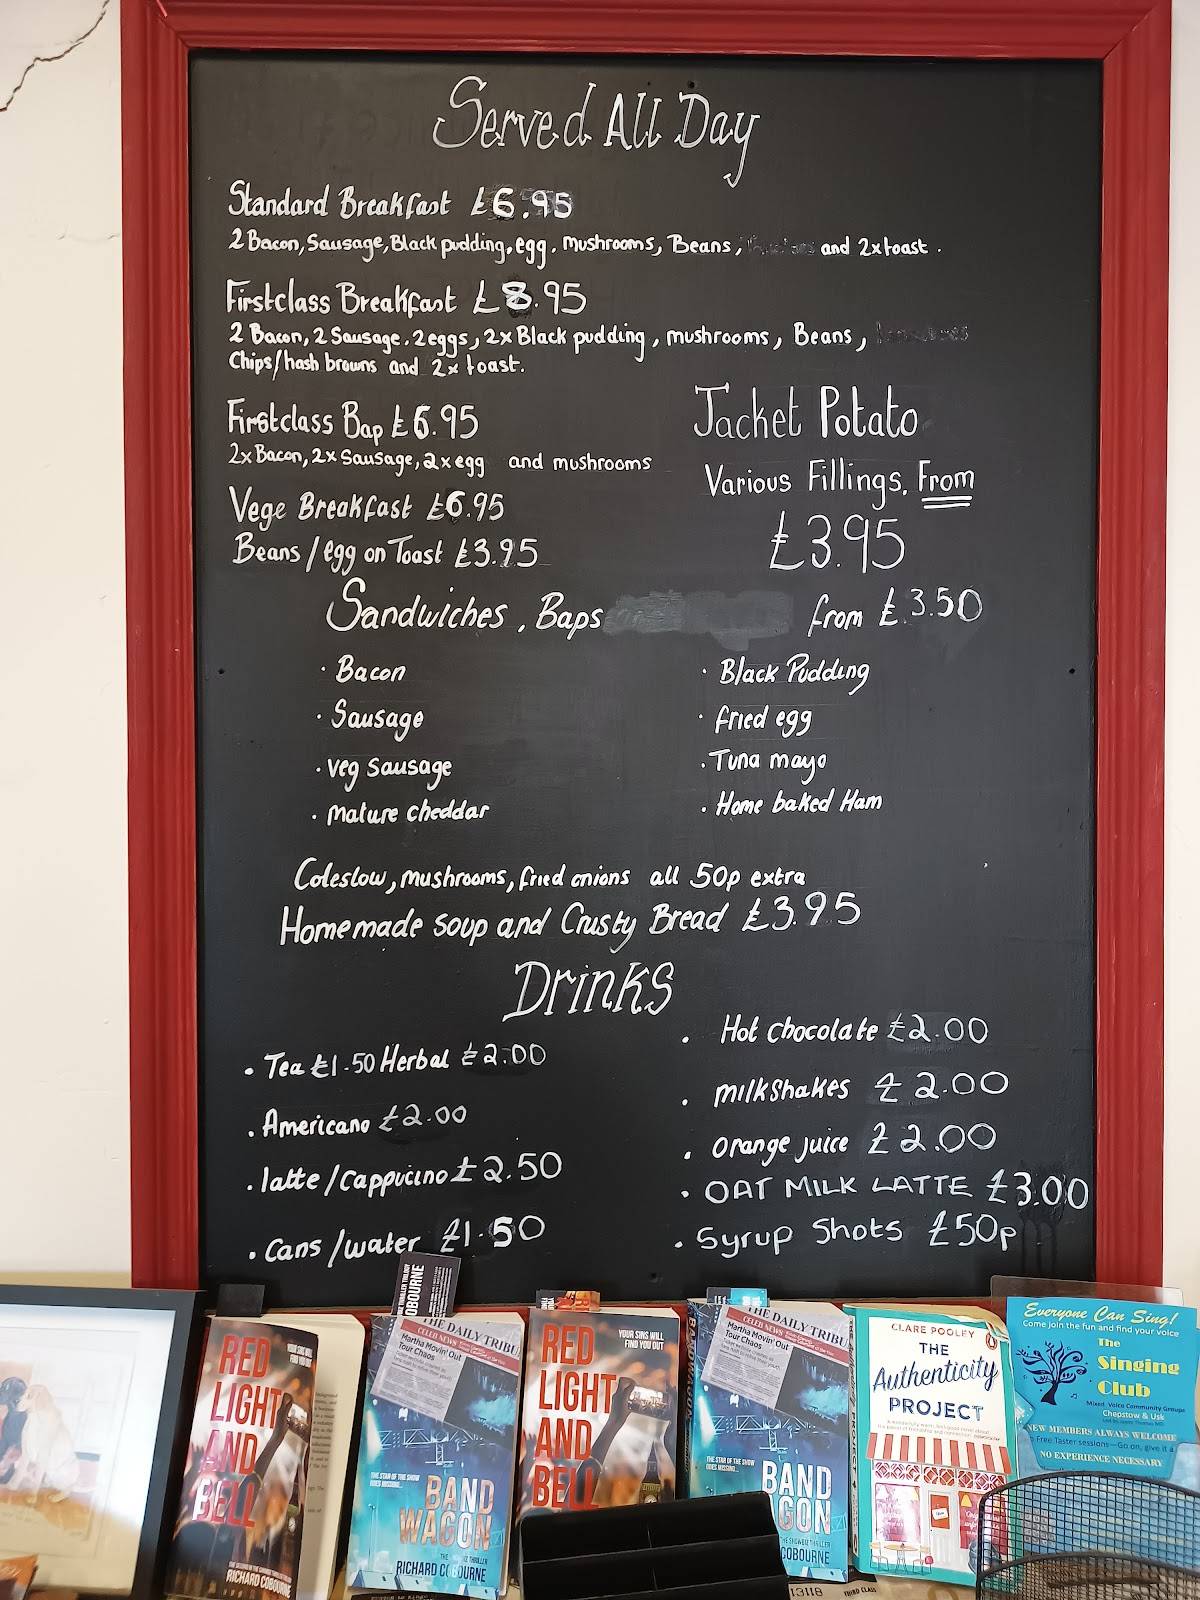 Served All Day
Standard Breakfast £6.95
2 Bacon, Sausage, Black pudding, egg, mushrooms, Beans, and 2x toast.
Firstclass Breakfast £8.95
2 Bacon, 2 Sausage, 2 eggs, 2x Black pudding, mushrooms, Beans,
Chips/hash browns and 2x toast.
Firstclass Bap £6.95
2x Bacon, 2x Sausage, 2x egg and mushrooms
Vege Breakfast £6.95
Beans/egg on Toast £3.95
Jacket Potato
Various Fillings, From
£3.95
Sandwiches, Baps from £3.50
· Bacon
· Sausage
· Veg sausage
· Mature cheddar
· Black Pudding
· Fried egg
· Tuna mayo
· Home baked Ham
Coleslow, mushrooms, fried onions all 50p extra
Homemade soup and Crusty Bread £3.95
Drinks
· Tea £1.50 Herbal £2.00
· Americano £2.00
· latte/Cappucino £2.50
· Cans/water £1.50
· Hot chocolate £2.00
· Milkshakes £2.00
· Orange juice £2.00
· OAT MILK LATTE £3.00
· Syrup Shots £50p
OBOURNE
RED
LIGHT
AND
BELL
RICHARD COBOURNE
THE DAILY TRIBU
CELEB NEWS
Martha Movin' Out
Tour Chaos
THE STAR OF THE SHOW
GOES MISSING...
BAND
WAGON
RICHARD COBOURNE
YOUR SINS WILL
FIND YOU OUT
RED
LIGHT
AND
BELL
THE DAILY TRIBU
CELEB NEWS
Martha Movin' Out
Tour Chaos
THE STAR OF THE SHOW
GOES MISSING...
BAND
GON
COBOURNE
13118
THIRD CLASS
CLARE POOLEY
THE
Authenticity
PROJECT
Everyone Can Sing!
Come join the fun and find your voice
The
Singing
Club
Mixed Voice Community Groups
Chepstow & Usk
NEW MEMBERS ALWAYS WELCOME
Free Taster sessions—Go on, give it a
NO EXPERIENCE NECESSARY